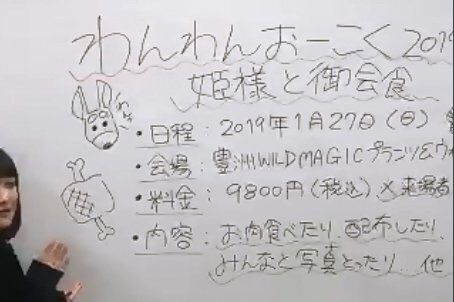 わんわんおーこく2019
姫様と御会食
わん
・日程：2019年1月27日（日）
・会場：豊洲WILDMAGICプランツ&ヴ
・料金：9800円（税込）×来場者
・内容：お肉食べたり、配布したり、
みんなと写真とったり、他